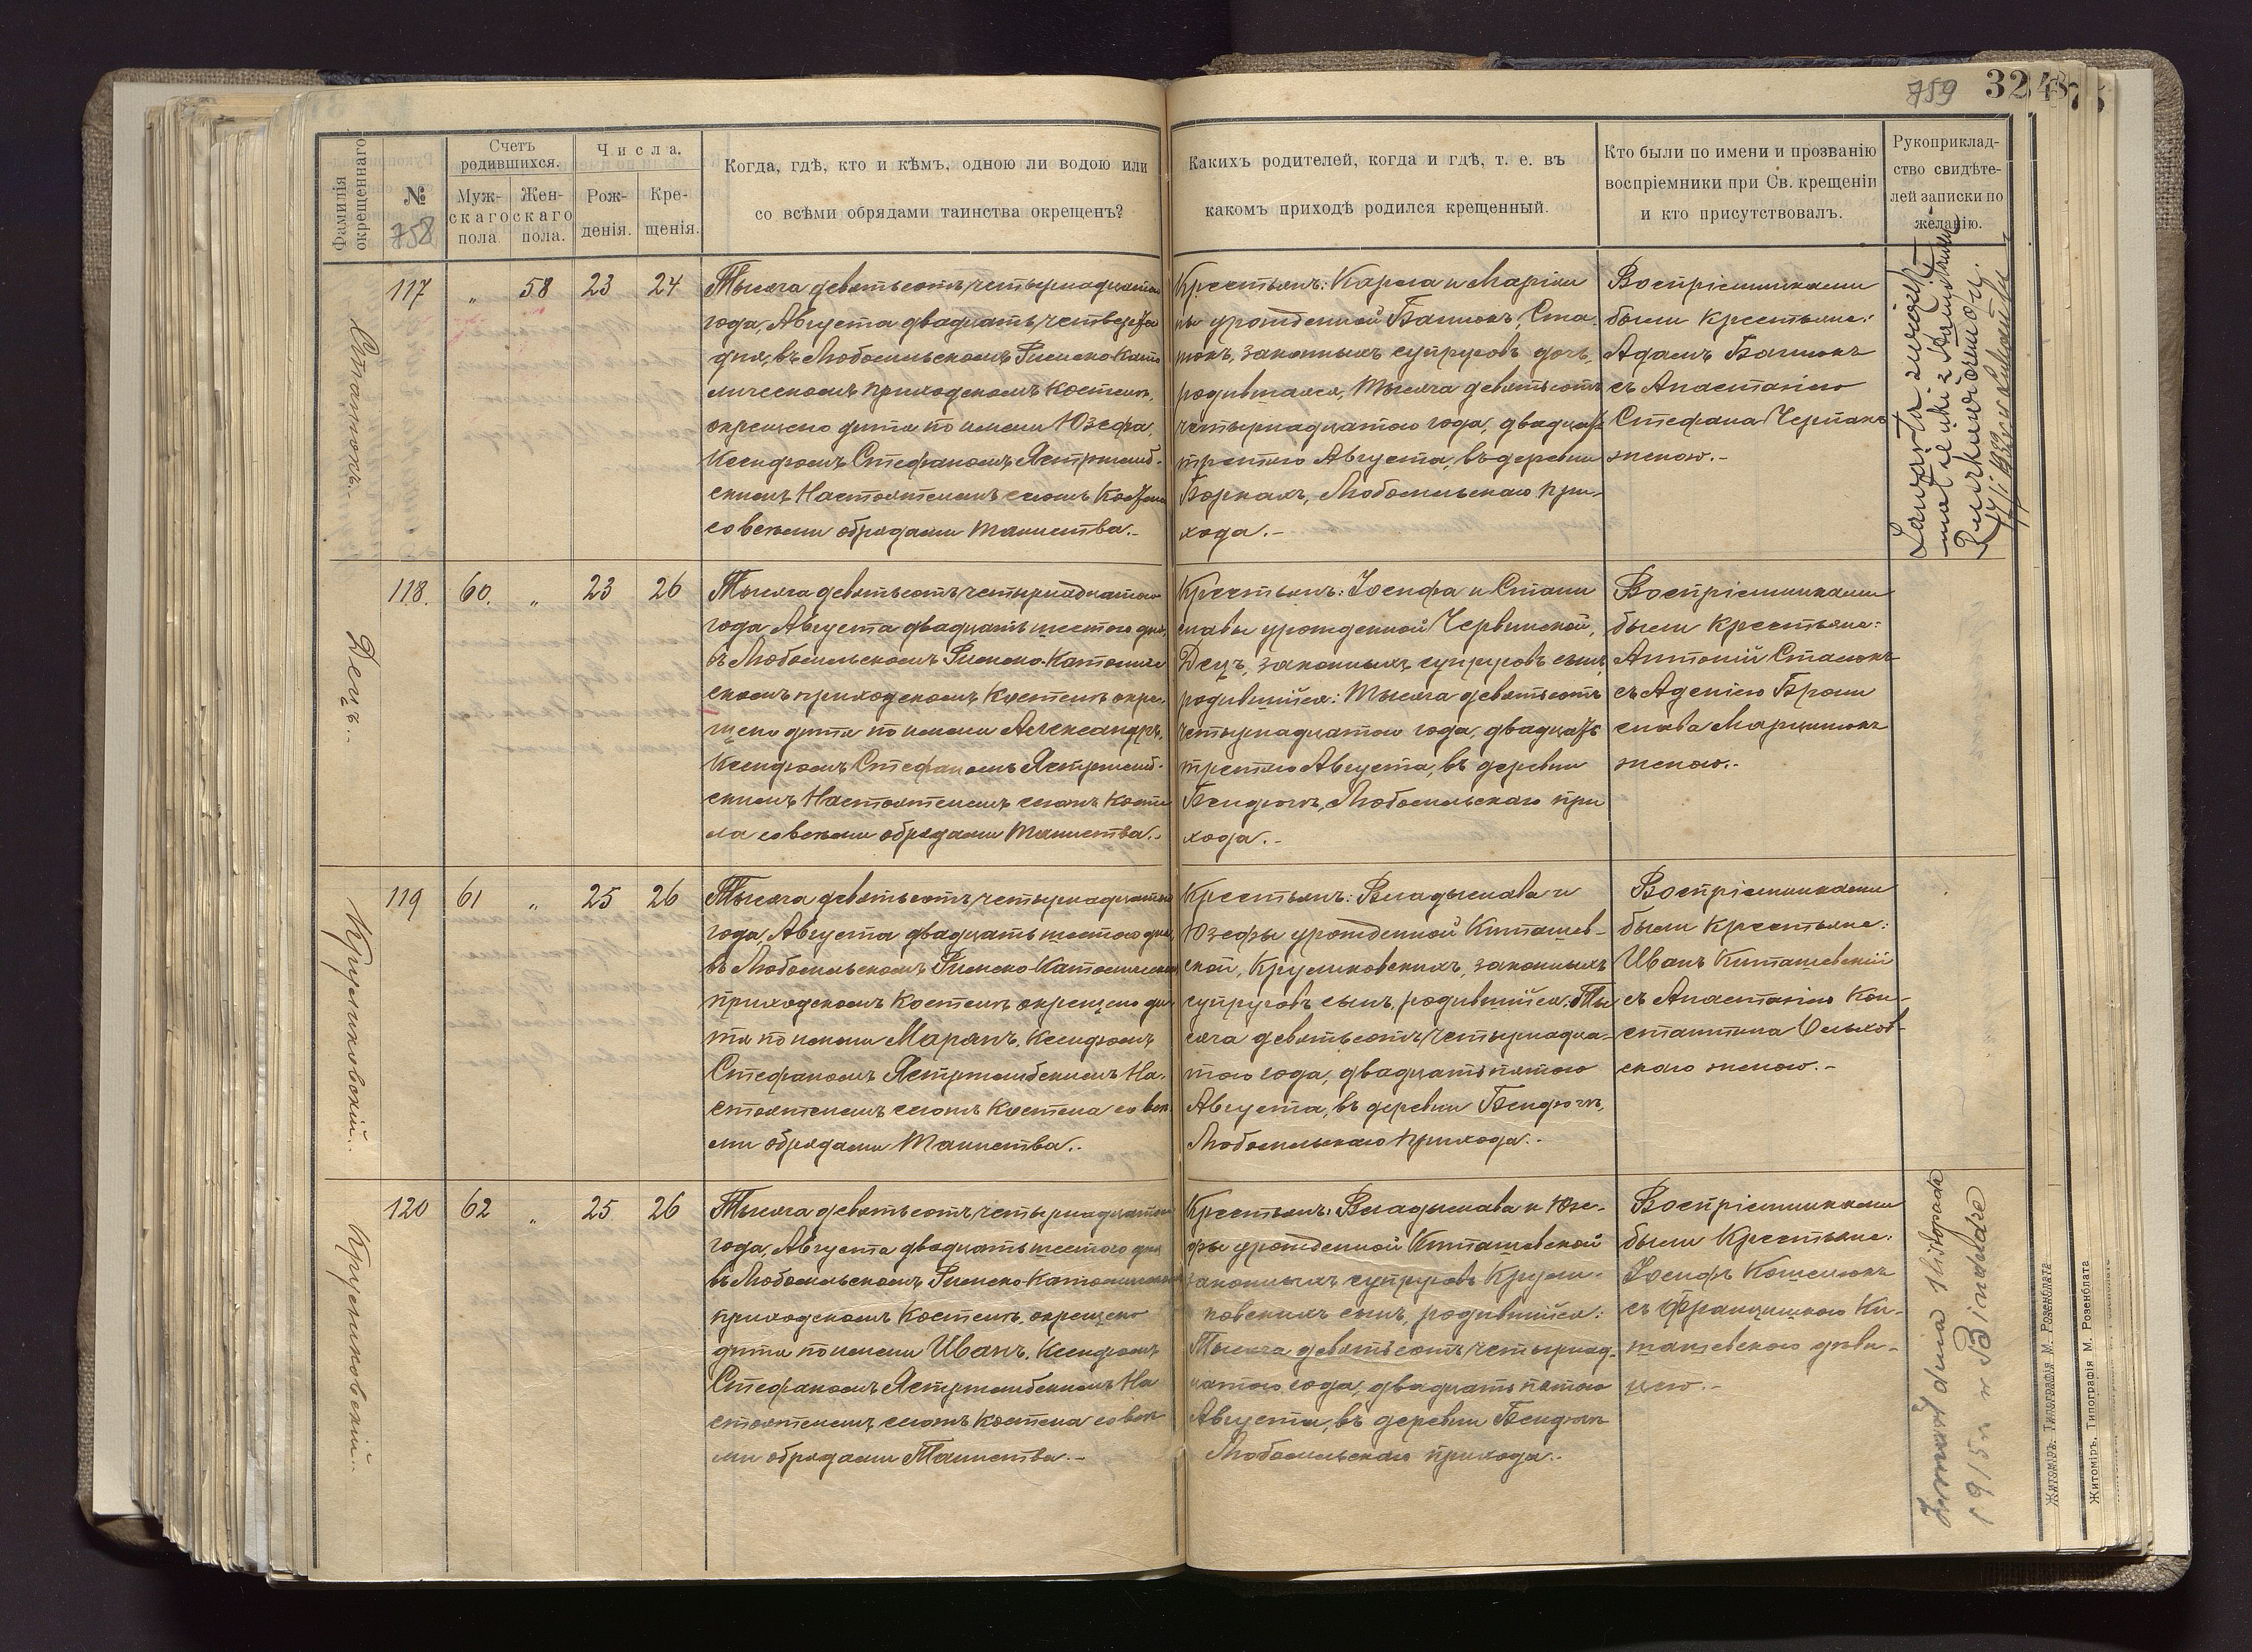 758
759
32
48
Фамилія окрещеннаго
№
Счетъ родившихся.
Муж-скаго пола
Жен-скаго пола.
Числа.
Рож-денія.
Кре-щенія.
Когда, гдѣ, кто и кѣмъ, одною ли водою или
со всѣми обрядами таинства окрещенъ?
Какихъ родителей, когда и гдѣ, т. е. въ
какомъ приходѣ родился крещенный.
Кто были по имени и прозванію
воспріемники при Св. крещеніи
и кто присутствовалъ.
Рукоприклад-
ство свидѣте-
лей записки по
желанію.
117 „ 58 23 24
Тысяча девятьсотъ четырнадцатаго
года, Августа двадцать четвертаго
дня, въ Любомльскомъ Римско-Като
лическомъ приходскомъ Костелѣ,
окрещено дитя по имени Юзефа,
Ксендзомъ Стефаномъ Ястржемб-
скимъ Настоятелемъ сего Костела
со всѣми обрядами Таинства.-
Крестьянъ: Карола и Маріан
ны урожденной Башюкъ, Ста-
тюкъ, законныхъ супруговъ дочь,
родившаяся, Тысяча девятьсотъ
четырнадцатаго года, двадцать
третяго Августа, въ деревни
Боркахъ, Любомльскаго при-
хода.-
Воспріемниками
были Крестьяне:
Адамъ Башюкъ
съ Анастасіею
Стефана Черпакъ
женою.-
118. 60. „ 23 26
Децъ..
Тысяча девятьсотъ четырнадцатаго
года Августа двадцать шестого дня,
въ Любомльскомъ Римско-Католиче
скомъ приходскомъ Костелѣ окре-
щено дитя по имени Александръ,
Ксендзомъ Стефаномъ Ястржемб-
скимъ Настоятелемъ сего Косте
ла со всѣми обрядами Таинства.-
Крестьянъ: Іосифа и Стани
славы урожденной Червинской,
Децъ, законныхъ супруговъ сынъ,
родившійся: Тысяча девятьсотъ
четырнадцатаго года, двадцать
третяго Августа, въ деревни
Бендюгѣ, Любомльскаго при
хода.-
Воспріемниками
были Крестьяне:
Антоній Сталюкъ
съ Аделіею Брони
слава Марцинюкъ
женою.-
119 61 „ 25 26
Круликовскій..
Тысяча девятьсотъ четырнадцатаго
года, Августа двадцать шестого дня,
въ Любомльскомъ Римско-Католическомъ
приходскомъ Костелѣ окрещено ди
тя по имени Марянъ, Ксендзомъ
Стефаномъ Ястржембскимъ На-
стоятелемъ сего Костела со всѣ
ми обрядами Таинства.-
Крестьянъ: Владыслава и
Юзефы урожденной Киташев-
ской, Круликовскихъ, законныхъ
супруговъ сынъ, родившійся: Ты
сяча девятьсотъ четырнадца-
таго года, двадцать пятого
Августа, въ деревни Бендюгѣ,
Любомльскаго прихода.-
Воспріемниками
были Крестьяне:
Иванъ Киташевскій
съ Анастасіею Кон-
стантина Ольхов-
скаго женою.-
120 62 „ 25 26
Круликовскій..
Тысяча девятьсотъ четырнадцатаго
года, Августа двадцать шестого дня
въ Любомльскомъ Римско-Католическомъ
приходскомъ Костелѣ, окрещено
дитя по имени Иванъ, Ксендзомъ
Стефаномъ Ястржембскимъ На
стоятелемъ сего Костела со всѣ
ми обрядами Таинства.-
Крестьянъ: Владыслава и Юзе-
фы урожденной Киташевской
законныхъ супруговъ Крули-
ковскихъ сынъ, родившійся:
Тысяча девятьсотъ четырнад-
цатаго года, двадцать пятого
Августа, въ деревни Бендюгѣ
Любомльскаго прихода.-
Воспріемниками
были Крестьяне:
Іосифъ
съ Францишкою Ки-
ташевскою дѣви-
цею.-
Zmarł dnia listopada
1915 r w Binduze
Житоміръ, Типографія М. Розенблата
Житоміръ, Типографія М. Розенблата